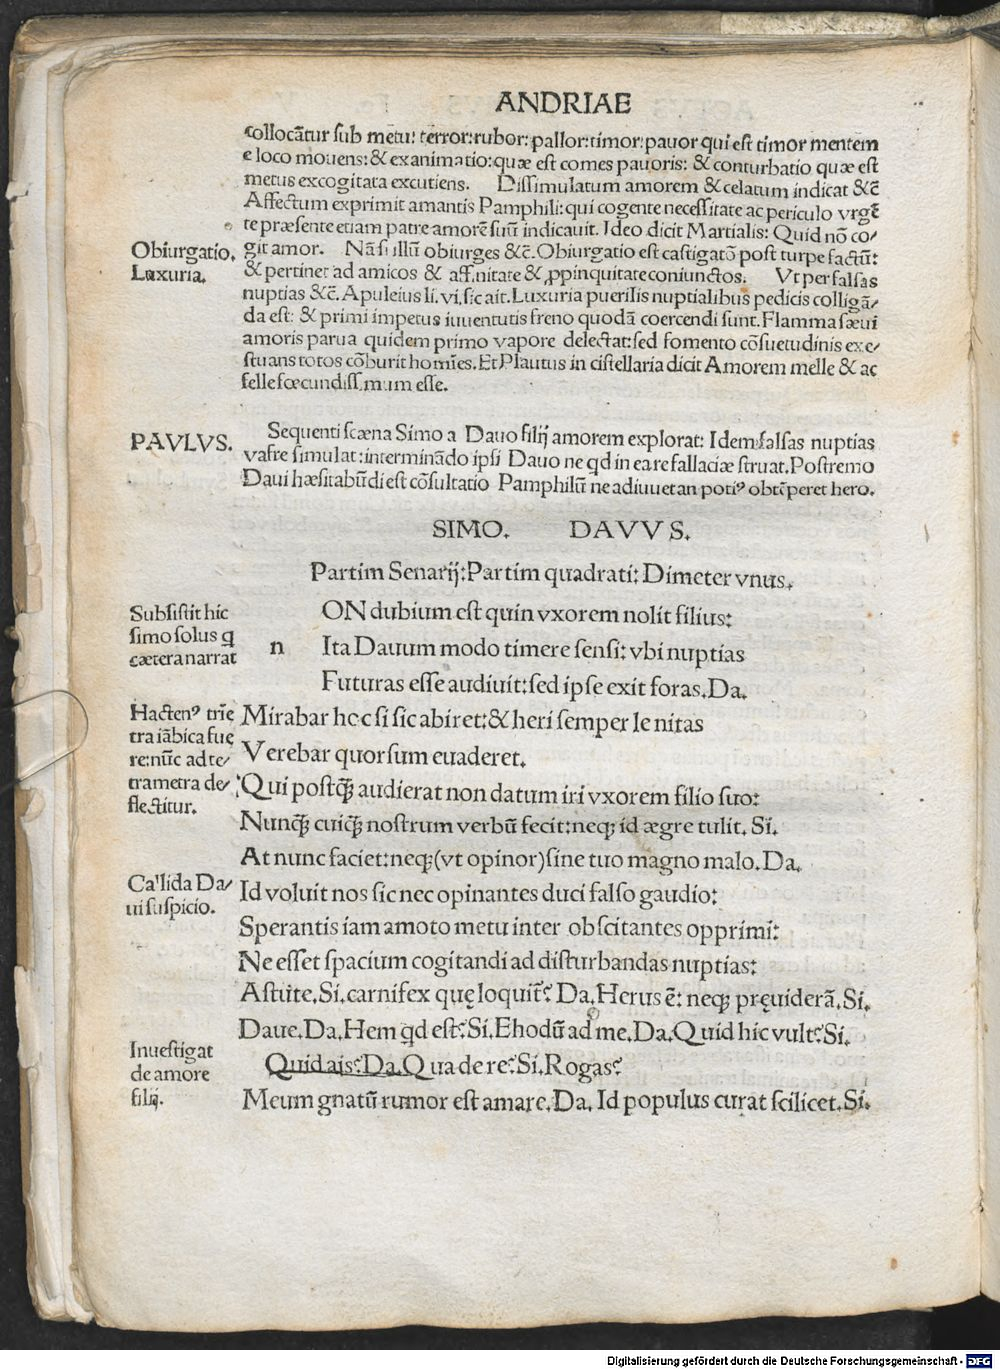 ANDRIAE
collocãtur sub metu: terror:rubor:pallor:timor:pauor qui est timor mentem
e loco mouens:& exanimatio:quæ est comes pauoris: & conturbatio quæ est
metus excogitata excutiens. Dissimulatum amorem & celatum indicat &c̃
Affectum exprimit amantis Pamphili:qui cogente necessitate ac periculo vrgẽ
te præsente etiam patre amorẽ suũ indicauit. Ideo dicit Martialis: Quid nõ co/
Obiurgatio. git amor. Nã si illũ obiurges &c̃. Obiurgatio est castigatõ post turpe factũ:
Luxuria. & pertinet ad amicos & affinitate & ꝓpinquitate coniunctos. Vt per falsas
nuptias &c̃. Apuleius li. vi. sic ait. Luxuria puerilis nuptialibus pedicis colligã/
da est: & primi impetus iuuentutis freno quodã coercendi sunt. Flamma sæui
amoris parua quidem primo vapore delectat:sed fomento cõsuetudinis exe/
stuans totos cõburit homĩes. Et Plautus in cistellaria dicit Amorem melle & ac
felle fœcundissimum esse.
PAVLVS. Sequenti scæna Simo a Dauo filij amorem explorat: Idem falsas nuptias
vafre simulat:interminãdo ipsi Dauo ne qd in ea re fallaciæ struat. Postremo
Daui hæsitabũdi est cõsultatio Pamphilũ ne adiuuet an potiꝰ obtẽperet hero.
SIMO. DAVVS.
Partim Senarij: Partim quadrati: Dimeter vnus.
Subsistit hic
simo solus q
cætera narrat
n
ON dubium est quin vxorem nolit filius:
Ita Dauum modo timere sensi: vbi nuptias
Futuras esse audiuit: sed ipse exit foras. Da.
Hactenꝰ trĩe
tra iãbica fue
re:nũc ad te/
trametra de/
flectitur.
Mirabar hoc si sic abiret:& heri semper lenitas
Verebar quorsum euaderet.
Qui postꝗ̃ audierat non datum iri vxorem filio suo:
Nunꝗ̃ cuiꝗ̃ nostrum verbũ fecit:neqꝫ id ægre tulit. Si.
At nunc faciet: neqꝫ (vt opinor) sine tuo magno malo. Da.
Callida Da/
ui suspicio.
Id voluit nos sic nec opinantes duci falso gaudio:
Sperantis iam amoto metu inter obscitantes opprimi:
Ne esset spacium cogitandi ad disturbandas nuptias:
Astute. Si. carnifex quę loquit̃? Da. Herus ẽ: neqꝫ pręuiderã. Si.
Daue. Da. Hem qd est? Si. Ehodũ ad me. Da. Quid hic vult? Si.
Inuestigat
de amore
filij.
Quid ais? Da. Qua de re? Si. Rogas?
Meum gnatũ rumor est amare. Da. Id populus curat scilicet. Si.
Digitalisierung gefördert durch die Deutsche Forschungsgemeinschaft - DFG